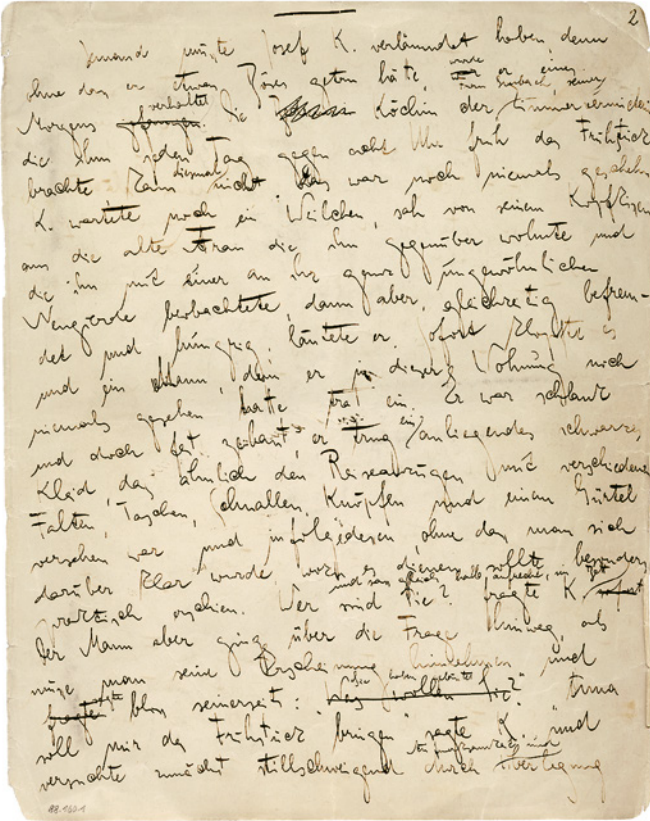 2
Jemand mußte Josef K. verläumdet haben, denn
ohne daß er etwas Böses getan hätte, wurde er eines
Morgens gefangen verhaftet. Die Köchin der Zimmervermieterin Frau Grubach, seiner
die ihm jeden Tag gegen acht Uhr früh das Frühstück
brachte kam diesmal nicht. Das war noch niemals geschehn
K. wartete noch ein Weilchen, sah von seinem Kopfkissen
aus die alte Frau die ihm gegenüber wohnte und
die ihn mit einer an ihr ganz ungewöhnlichen
Neugierde beobachtete, dann aber, gleichzeitig befrem-
det und hungrig, läutete er. Sofort klopfte es
und ein Mann, den er in dieser Wohnung noch
niemals gesehen hatte trat ein. Er war schlank
und doch fest gebaut, er trug ein anliegendes schwarzes
Kleid, das ähnlich den Reiseanzügen mit verschiedenen
Falten, Taschen, Schnallen, Knöpfen und einem Gürtel
versehen war und infolgedessen, ohne daß man sich
darüber klar wurde, wozu es dienen sollte, besonders
praktisch erschien. Wer sind Sie? fragte K. und saß gleich halb aufrecht im Bett sofort
Der Mann aber ging über die Frage hinweg, als
müße man seine Erscheinung hinnehmen und
fragte sagte bloß seinerseits: "Was wollen Sie?" Sie haben geläutet "Anna
soll mir das Frühstück bringen" sagte K. und
versuchte zunächst stillschweigend durch Aufmerksamkeit und Überlegung
88.160.1